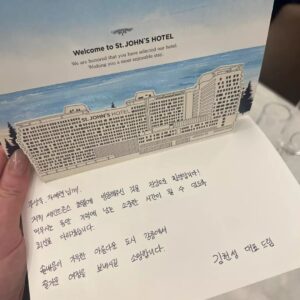 Welcome to St.JOHN'S HOTEL
We are honored that you have selected our hotel.
Wishing you a most enjoyable stay.
St.JOHN'S HOTEL
저희 세인트존스 호텔에 방문해주신 것을 진심으로 환영합니다!
머무시는 동안 기억에 남는 소중한 시간이 될 수 있도록
최선을 다하겠습니다.
솔내음이 가득한 아름다운 도시 강릉에서
즐거운 여행을 보내시길 소망합니다.
대표 드림